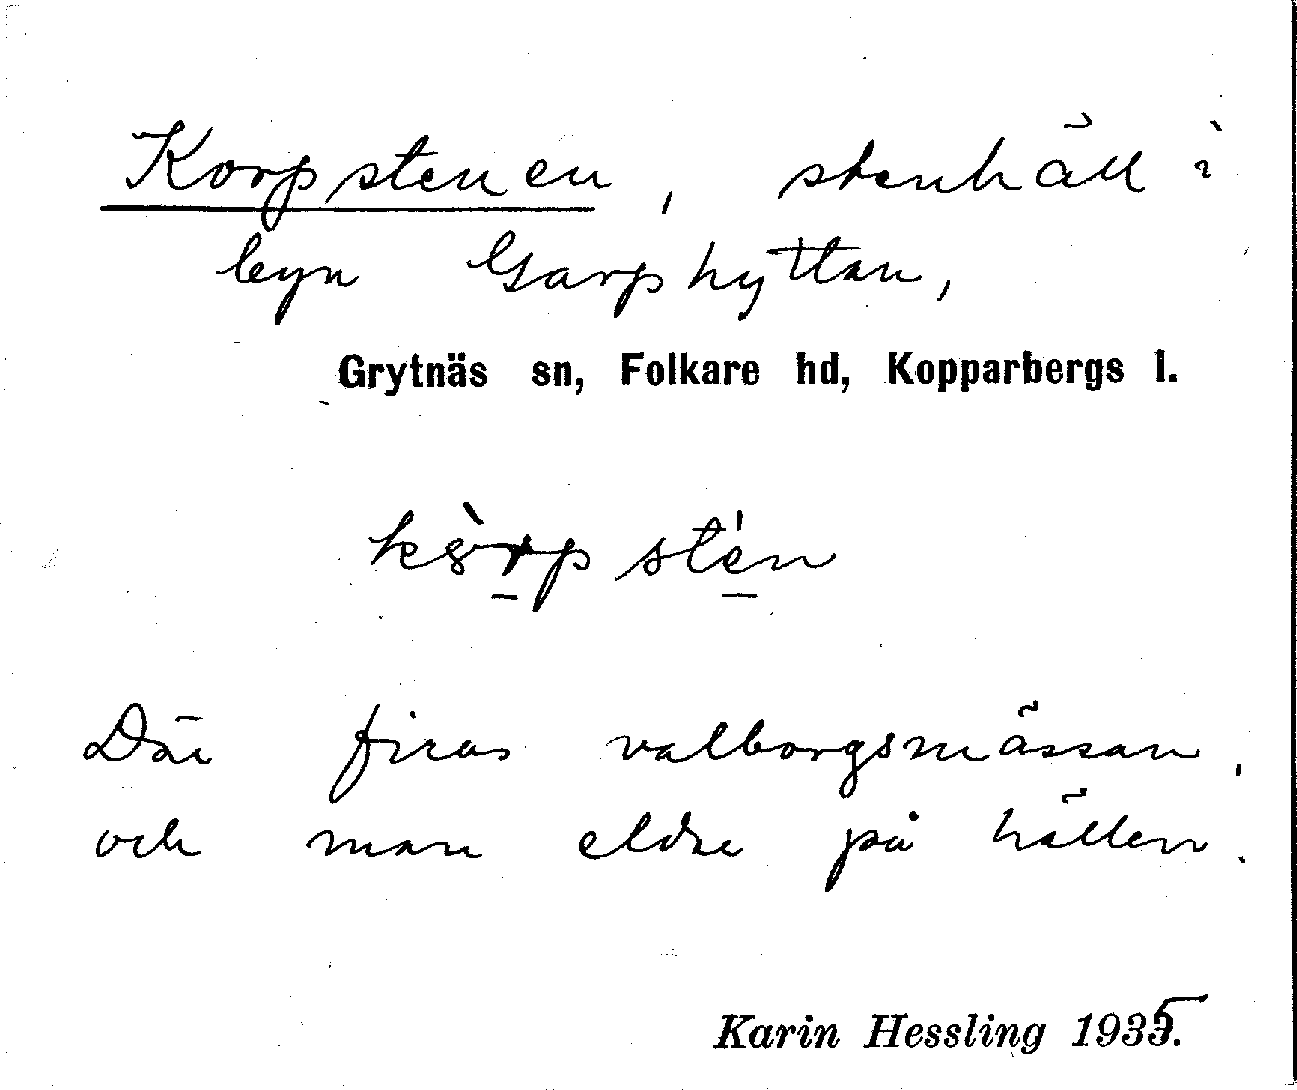 Korpstenen, stenhäll i
byn Garphyttan,
Grytnäs sn, Folkare hd, Kopparbergs l.
Där firas valborgsmässan,
och man eldar på hällen.
Karin Hessling 1935.